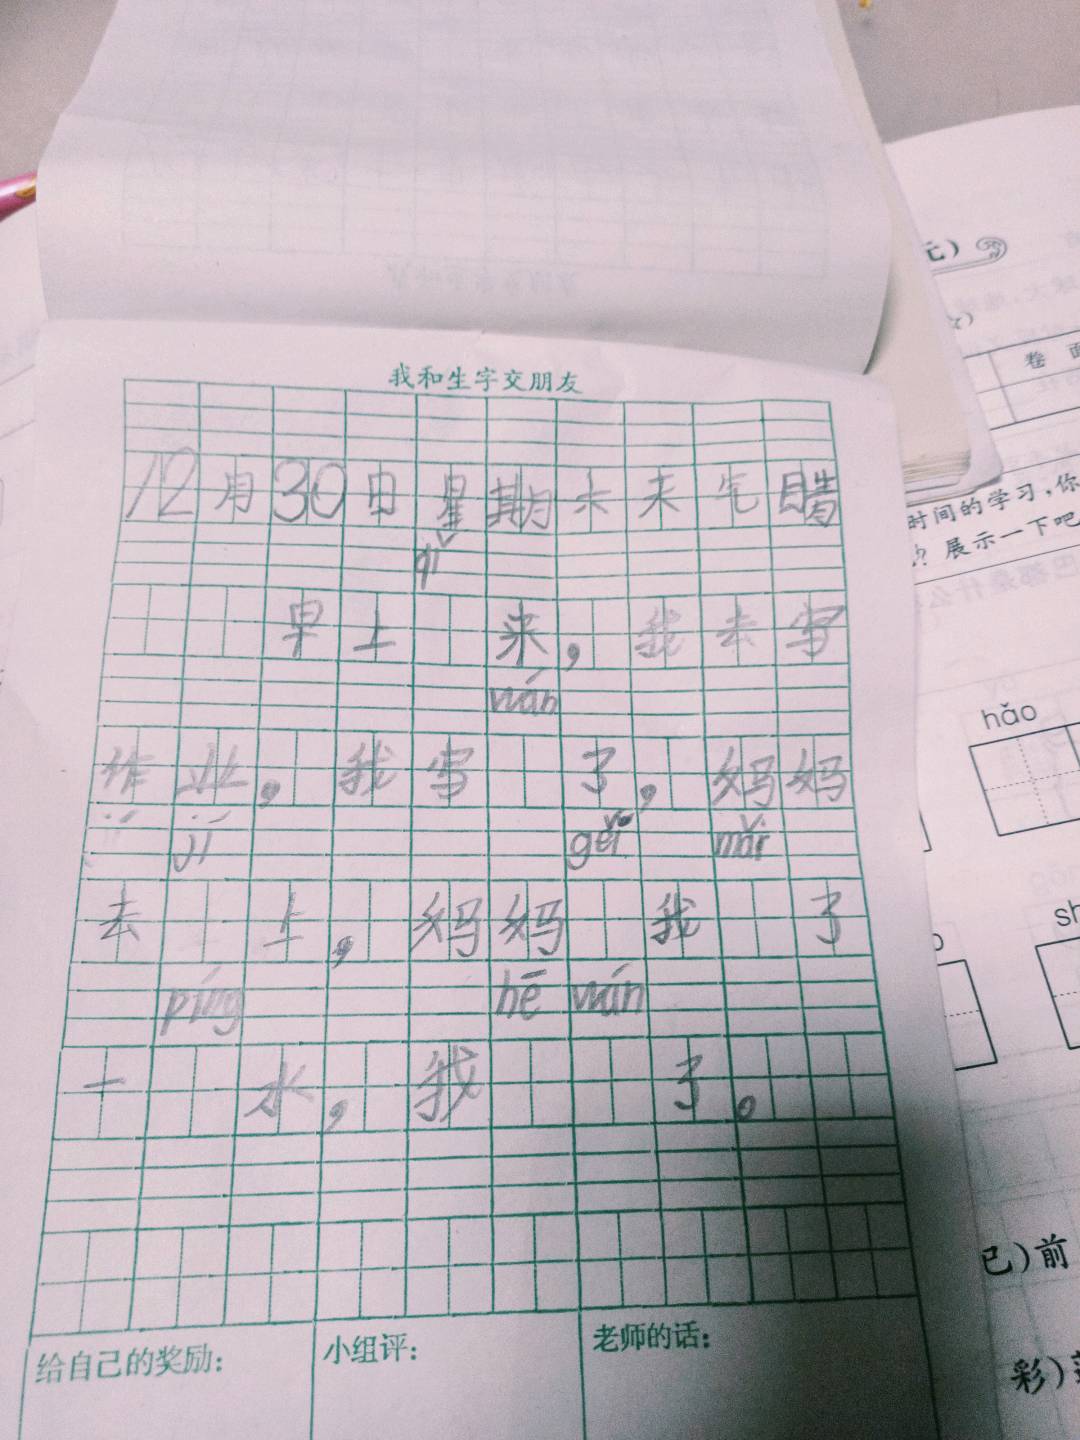 我和生字交朋友
12月30日星期六天气晴
qǐ
早上 来，我去写
wán
作业，我写 了，妈妈
jí gěi mǎi
去 上，妈妈 我 了
píng hē wán
一 水，我 了。
给自己的奖励： 小组评： 老师的话：
元）
卷 面
时间的学习，你
？展示一下吧
hǎo
sh
已）前
彩）